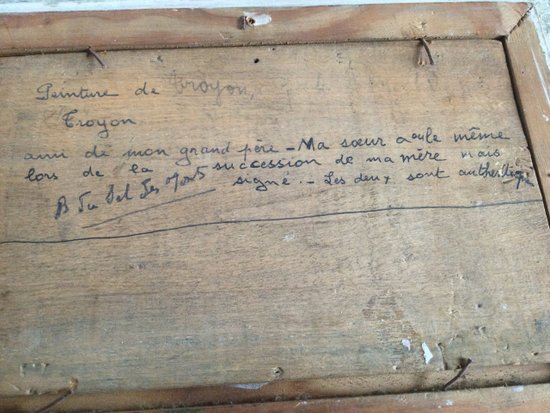 Peinture de Troyon
Troyon
ami de mon grand père - Ma sœur a eu le même
lors de la succession de ma mère mais
signé. - Les deux sont authentiques